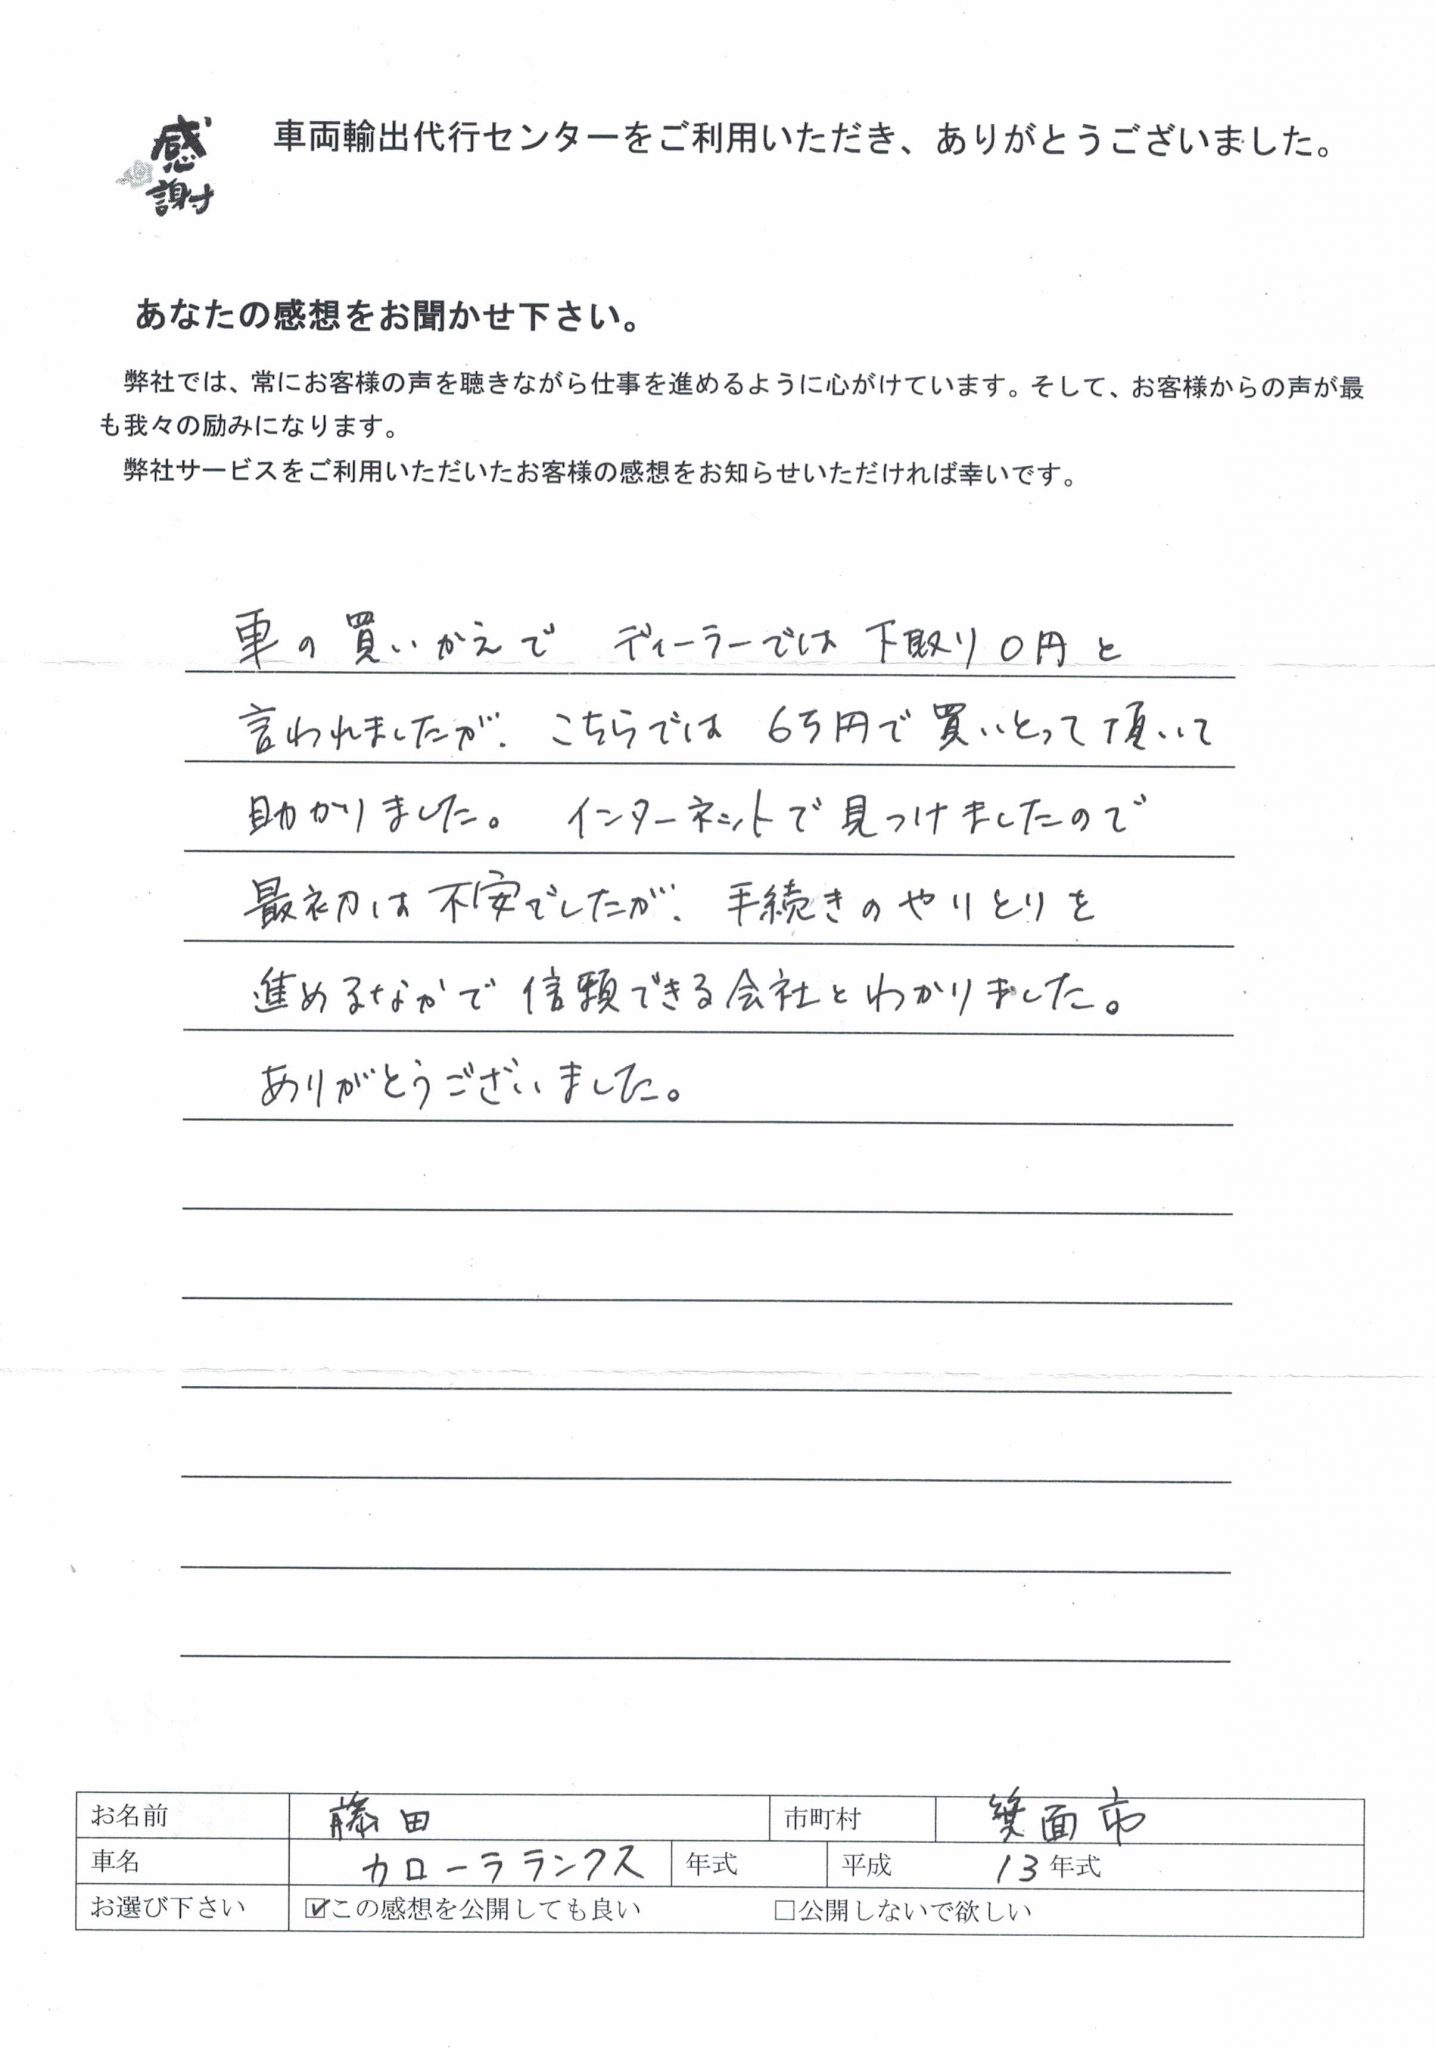 感謝
車両輸出代行センターをご利用いただき、ありがとうございました。
あなたの感想をお聞かせ下さい。
弊社では、常にお客様の声を聴きながら仕事を進めるように心がけています。そして、お客様からの声が最
も我々の励みになります。
弊社サービスをご利用いただいたお客様の感想をお知らせいただければ幸いです。
車の買いかえで ディーラーでは下取り0円と
言われましたが、こちらでは 6万円で買いとって頂いて
助かりました。 インターネットで見つけましたので
最初は不安でしたが、手続きのやりとりを
進めるなかで信頼できる会社とわかりました。
ありがとうございました。
お名前 藤田 市町村 箕面市
車名 カローラランクス 年式 平成 13年式
お選び下さい ☑この感想を公開しても良い □公開しないで欲しい